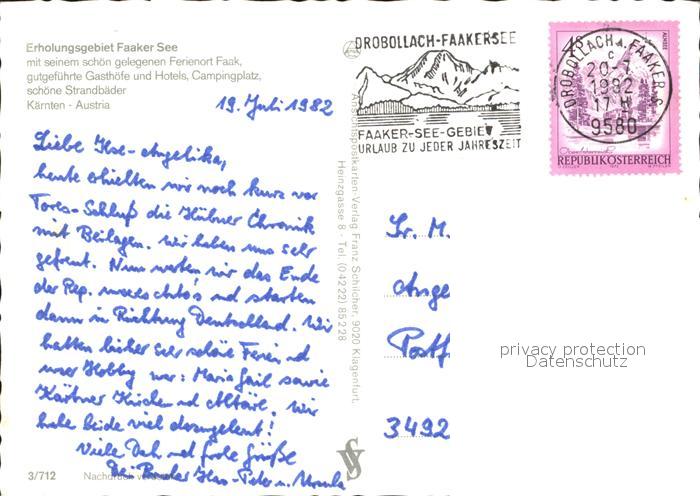 Erholungsgebiet Faaker See
mit seinem schön gelegenen Ferienort Faak,
gutgeführte Gasthöfe und Hotels, Campingplatz,
schöne Strandbäder
Kärnten - Austria
19. Juli 1982
Liebe Ilse-Angelika,
heute erhielten wir noch kurz vor
Tores-Schluß die Hübner Chronik
mit Beilagen. Wir haben uns sehr
gefreut. Nun warten wir das Ende
der Rep. unseres Autos und starten
dann in Richtung Deutschland. Wir
hatten bisher sehr schöne Ferien und
unser Hobby war: Maria Gail sowie
Kärtner Kirchen und Altäre. Wir
habe beide viel dazugelernt!
Viele Dank und frohe Grüße
Hans-Peter u. Ursula
3/712
Nachdruck
Ansichtspostkarten-Verlag Franz Schilcher, 9020 Klagenfurt,
Heinzgasse 8 - Tel. (0 42 22) 85 2 28
DROBOLLACH-FAAKERSEE
FAAKER-SEE-GEBIET
URLAUB ZU JEDER JAHRESZEIT
DROBOLLACH a. FAAKER S.
c
20.-7
1982
17 H
9580
REPUBLIK ÖSTERREICH
ALMSEE
Fr. M.
Ange
Postf
3492
privacy protection
Datenschutz